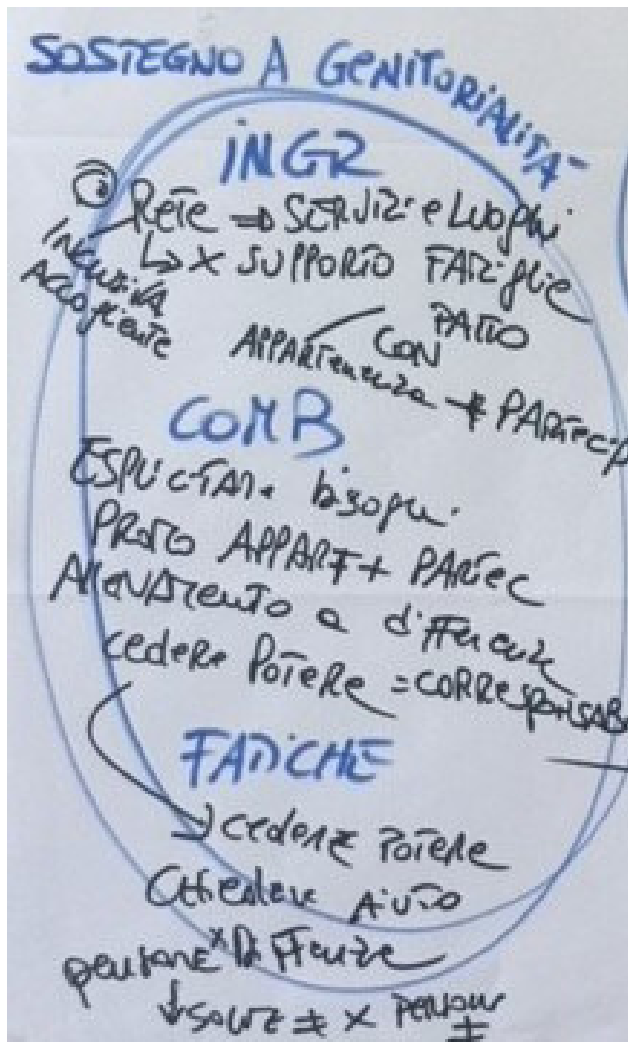 SOSTEGNO A GENITORIALITÀ
INGR
RETE ⇒ SERVIZI e LUOGHI
↳ x SUPPORTO FAMIGLIE
INCLUSIVA
ACCOGLIENTE
PATTO
CON
APPARTENENZA + PARTECIP
COMB
ESPLICITARE bisogni
PROTO APPART + PARTEC
ALLENAMENTO a differenze
cedere POTERE = CORRESPONSAB
FATICHE
→ cedere POTERE
CHIEDERE AIUTO
pensare x DIFFERENZE
↓ SOLUZ ≠ x PERSONE
≠